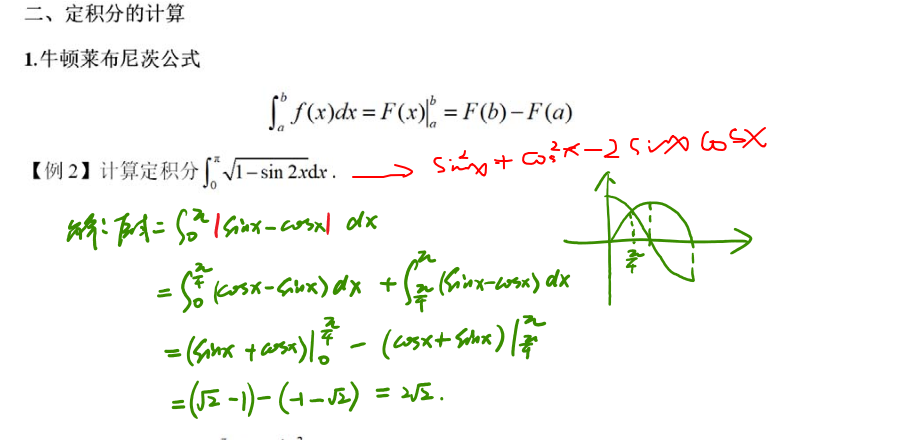 二、定积分的计算
1.牛顿莱布尼茨公式
∫_a^b f(x)dx = F(x)|_a^b = F(b) − F(a)
【例 2】计算定积分∫_0^π √(1−sin 2x)dx .
→ sin²x + cos²x − 2 sinx cosx
解: 原式 = ∫_0^π |sinx − cosx| dx
= ∫_0^{π/4} (cosx − sinx) dx + ∫_{π/4}^π (sinx − cosx) dx
π/4
= (sinx + cosx)|_0^{π/4} − (cosx + sinx)|_{π/4}^π
= (√2 − 1) − (−1 − √2) = 2√2 .